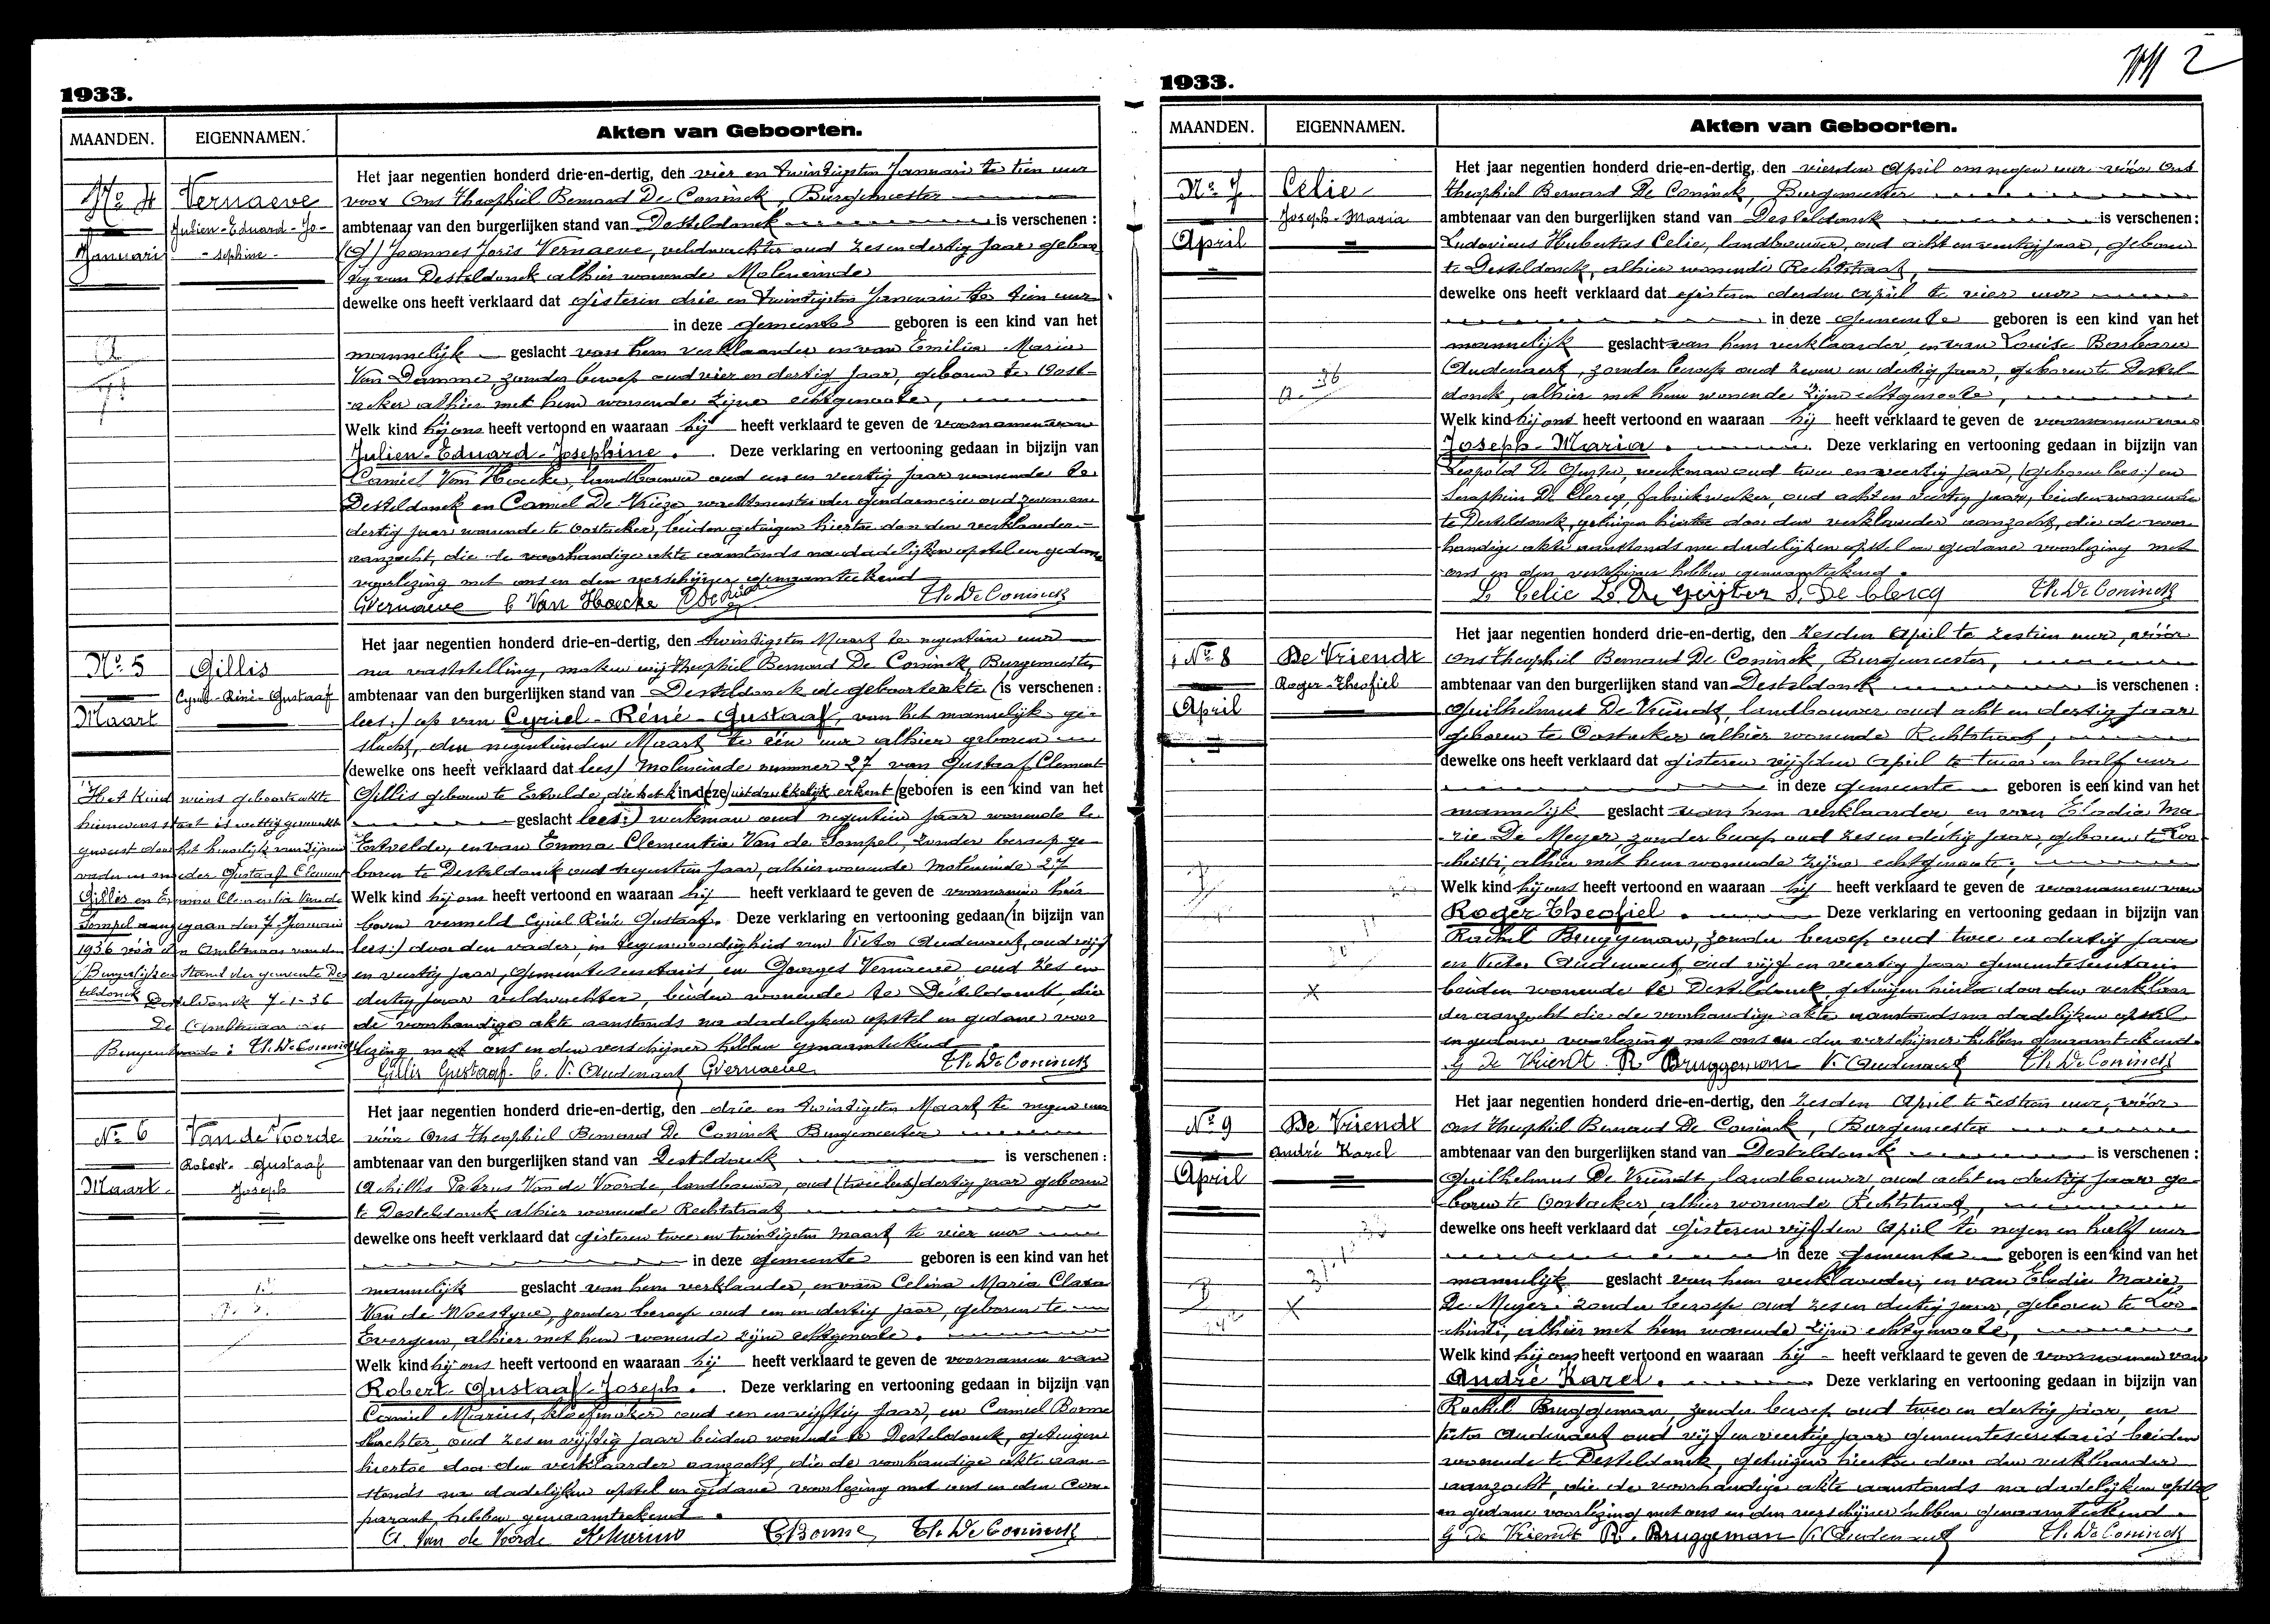 1933.
MAANDEN.
EIGENNAMEN.
Akten van Geboorten.
No 4
Januari
Vernaeve
Julien-Eduard-Jo-
-sephine-
Het jaar negentien honderd drie-en-dertig, den vier en twintigsten Januari te tien uur
voor Ons Theophiel Bernard De Coninck, Burgemeester
ambtenaar van den burgerlijken stand van Desteldonck is verschenen :
Joannes Joris Vernaeve, veldwachter oud zes en dertig jaar geboor-
tig van Desteldonck alhier wonende Moleneinde
dewelke ons heeft verklaard dat gisteren drie en twintigsten Januari te tien uur
in deze gemeente geboren is een kind van het
mannelijk geslacht van hem verklaarder en van Emilia Maria
Van Damme zonder beroep oud vier en dertig jaar, geboren te Oost-
acker alhier met hem wonende zijne echtgenoote,
Welk kind hij ons heeft vertoond en waaraan hij heeft verklaard te geven de voornamen van
Julien-Eduard-Josephine. Deze verklaring en vertooning gedaan in bijzijn van
Camiel Van Hoecke, landbouwer oud een en veertig jaar wonende te
Desteldonck en Camiel De Vrieze, wachtmeester der gendarmerie oud zeven en
dertig jaar wonende te Oostacker, beiden getuigen hiertoe door den verklaarder
aanzocht, die de voorhandige akte aanstonds na dadelijken opstel en gedane
voorlezing met ons en den verschijner genaamteekend
GVernaeve C Van Hoecke Th. De Coninck
No 5
Maart
Gillis
Cyriel-Réné-Gustaaf
Het jaar negentien honderd drie-en-dertig, den twintigsten Maart te negentien uur
na vaststelling, maken wij Theophiel Bernard De Coninck, Burgemeester,
ambtenaar van den burgerlijken stand van Desteldonck de geboorteakte (is verschenen :
lees:) op van Cyriel-Réné-Gustaaf, van het mannelijk ge-
slacht, den negentienden Maart te één uur alhier geboren
(dewelke ons heeft verklaard dat lees) Moleneinde nummer 27 van Gustaaf Clement
Gillis geboren te Ertvelde, die het kind (in deze) uitdrukkelijk erkent (geboren is een kind van het
geslacht lees:) werkman oud negentien jaar wonende te
Ertvelde, en van Emma Clementia Van de Sompel, zonder beroep ge-
boren te Desteldonck oud negentien jaar, alhier wonende Moleneinde 27
Welk kind hij ons heeft vertoond en waaraan hij heeft verklaard te geven de voornamen hier
boven vermeld Cyriel Réné Gustaaf. Deze verklaring en vertooning gedaan (in bijzijn van
lees:) door den vader, in tegenwoordigheid van Victor Audenaert, oud vijf
en veertig jaar, gemeentesecretaris, en Georges Vernaeve oud zes en
dertig jaar veldwachter, beiden wonende te Desteldonck, die
de voorhandige akte aanstonds na dadelijken opstel en gedane voor
lezing met ons en den verschijner hebben genaamteekend
Gillis Gustaaf. V. Audenaert GVernaeve Th. De Coninck
Het kind wiens geboorteakte
hiernevens staat is wettig gemaakt
geweest door het huwelijk van zijnen
vader en moeder Gustaaf Clement
Gillis en Emma Clementia Van de
Sompel aangegaan den 7 Januari
1936 vóór den Ambtenaar van den
Burgerlijken Stand der gemeente Des
teldonck Desteldonck 7-1-36
De Ambtenaar van
Burgerstande: Th. De Coninck
No 6
Maart.
Van de Voorde
Robert- Gustaaf
Joseph
Het jaar negentien honderd drie-en-dertig, den drie en twintigsten Maart te negen uur
vóór Ons Theophiel Bernard De Coninck Burgemeester
ambtenaar van den burgerlijken stand van Desteldonck is verschenen :
Achilles Petrus Van de Voorde, landbouwer, oud dertig jaar geboren
te Desteldonck alhier wonende Rechtstraat
dewelke ons heeft verklaard dat gisteren twee en twintigsten Maart te vier uur
in deze gemeente geboren is een kind van het
mannelijk geslacht van hem verklaarder, en van Celina Maria Clara
Van de Moestyne, zonder beroep oud een en dertig jaar, geboren te
Evergem, alhier met hem wonende zijne echtgenoote.
Welk kind hij ons heeft vertoond en waaraan hij heeft verklaard te geven de voornamen van
Robert-Gustaaf-Joseph. Deze verklaring en vertooning gedaan in bijzijn van
Camiel Marius, oud een en vijftig jaar, en Camiel Borne
slachter, oud zes en vijftig jaar beiden wonende te Desteldonck, getuigen
hiertoe door den verklaarder aanzocht, die de voorhandige akte aan-
stonds na dadelijken opstel en gedane voorlezing met ons en den com-
parant, hebben genaamteekend.
A. Van de Voorde CBorne, Th. De Coninck
2
1933.
MAANDEN.
EIGENNAMEN.
Akten van Geboorten.
No. 7
April
Celie
Joseph-Maria
Het jaar negentien honderd drie-en-dertig, den vierden April om negen uur vóór Ons
Theophiel Bernard De Coninck, Burgemeester
ambtenaar van den burgerlijken stand van Desteldonck is verschenen :
Ludovicus Hubertus Celie, landbouwer, oud acht en veertig jaar, geboren
te Desteldonck, alhier wonende Rechtstraat,
dewelke ons heeft verklaard dat gisteren derden April te vier uur
in deze gemeente geboren is een kind van het
mannelijk geslacht van hem verklaarder, en van Louise Barbara
Audenaert, zonder beroep oud zeven en dertig jaar, geboren te Destel-
donck, alhier met hem wonende zijne echtgenoote,
Welk kind hij ons heeft vertoond en waaraan hij heeft verklaard te geven de voornamen van
Joseph-Maria. Deze verklaring en vertooning gedaan in bijzijn van
Leopold De Guyter, werkman oud twee en veertig jaar, (geboren lees:) en
Seraphin De Clercq, fabriekwerker, oud acht en veertig jaar, beiden wonende
te Desteldonck, getuigen hiertoe door den verklaarder aanzocht, die de voor
handige akte aanstonds na dadelijken opstel en gedane voorlezing met
ons en den verschijner hebben genaamteekend.
L Celie L. De Geyter S. De Clercq Th. De Coninck
No 8
April
De Vriendt
Roger-Theofiel
Het jaar negentien honderd drie-en-dertig, den zesden April te zestien uur, vóór
ons Theophiel Bernard De Coninck, Burgemeester,
ambtenaar van den burgerlijken stand van Desteldonck is verschenen :
Guilhelmus De Vriendt, landbouwer oud acht en dertig jaar
geboren te Oostacker alhier wonende Rechtstraat,
dewelke ons heeft verklaard dat gisteren vijfden April te twee en half uur
in deze gemeente geboren is een kind van het
mannelijk geslacht van hem verklaarder, en van Elodia Ma-
rie De Meyer, zonder beroep oud zes en dertig jaar, geboren te Loo-
christi, alhier met hem wonende zijne echtgenoote;
Welk kind hij ons heeft vertoond en waaraan hij heeft verklaard te geven de voornamen van
Roger Theofiel. Deze verklaring en vertooning gedaan in bijzijn van
Rachel Bruggeman, zonder beroep oud twee en dertig jaar
en Victor Audenaert, oud vijf en veertig jaar gemeentesecretaris
beiden wonende te Desteldonck, getuigen hiertoe door den verklaar
der aanzocht die de voorhandige akte aanstonds na dadelijken opstel
en gedane voorlezing met ons en den verschijner hebben genaamteekend.
G De Vriendt R Bruggeman V. Audenaert Th. De Coninck
No 9
April
De Vriendt
André Karel
Het jaar negentien honderd drie-en-dertig, den zesden April te zestien uur, vóór
ons Theophiel Bernard De Coninck, Burgemeester
ambtenaar van den burgerlijken stand van Desteldonck is verschenen :
Guilhelmus De Vriendt, landbouwer oud acht en dertig jaar ge-
boren te Oostacker, alhier wonende Rechtstraat,
dewelke ons heeft verklaard dat gisteren vijfden April te negen en half uur
in deze gemeente geboren is een kind van het
mannelijk geslacht van hem verklaarder, en van Elodia Marie
De Meyer, zonder beroep oud zes en dertig jaar, geboren te Loo-
christi, alhier met hem wonende zijne echtgenoote,
Welk kind hij ons heeft vertoond en waaraan hij heeft verklaard te geven de voornamen van
André Karel. Deze verklaring en vertooning gedaan in bijzijn van
Rachel Bruggeman, zonder beroep oud twee en dertig jaar, en
Victor Audenaert oud vijf en veertig jaar gemeentesecretaris beiden
wonende te Desteldonck, getuigen hiertoe door den verklaarder
aanzocht, die de voorhandige akte aanstonds na dadelijken opstel
en gedane voorlezing met ons en den verschijner hebben genaamteekend.
G De Vriendt R. Bruggeman V. Audenaert Th. De Coninck